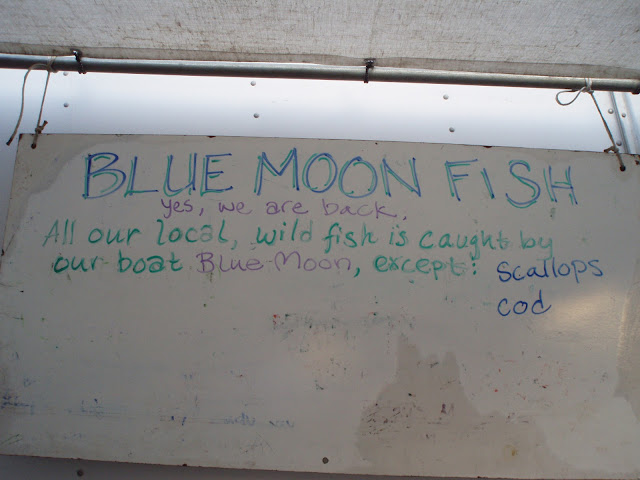 BLUE MOON FISH
yes, we are back.
All our local, wild fish is caught by
our boat Blue Moon, except: Scallops
cod